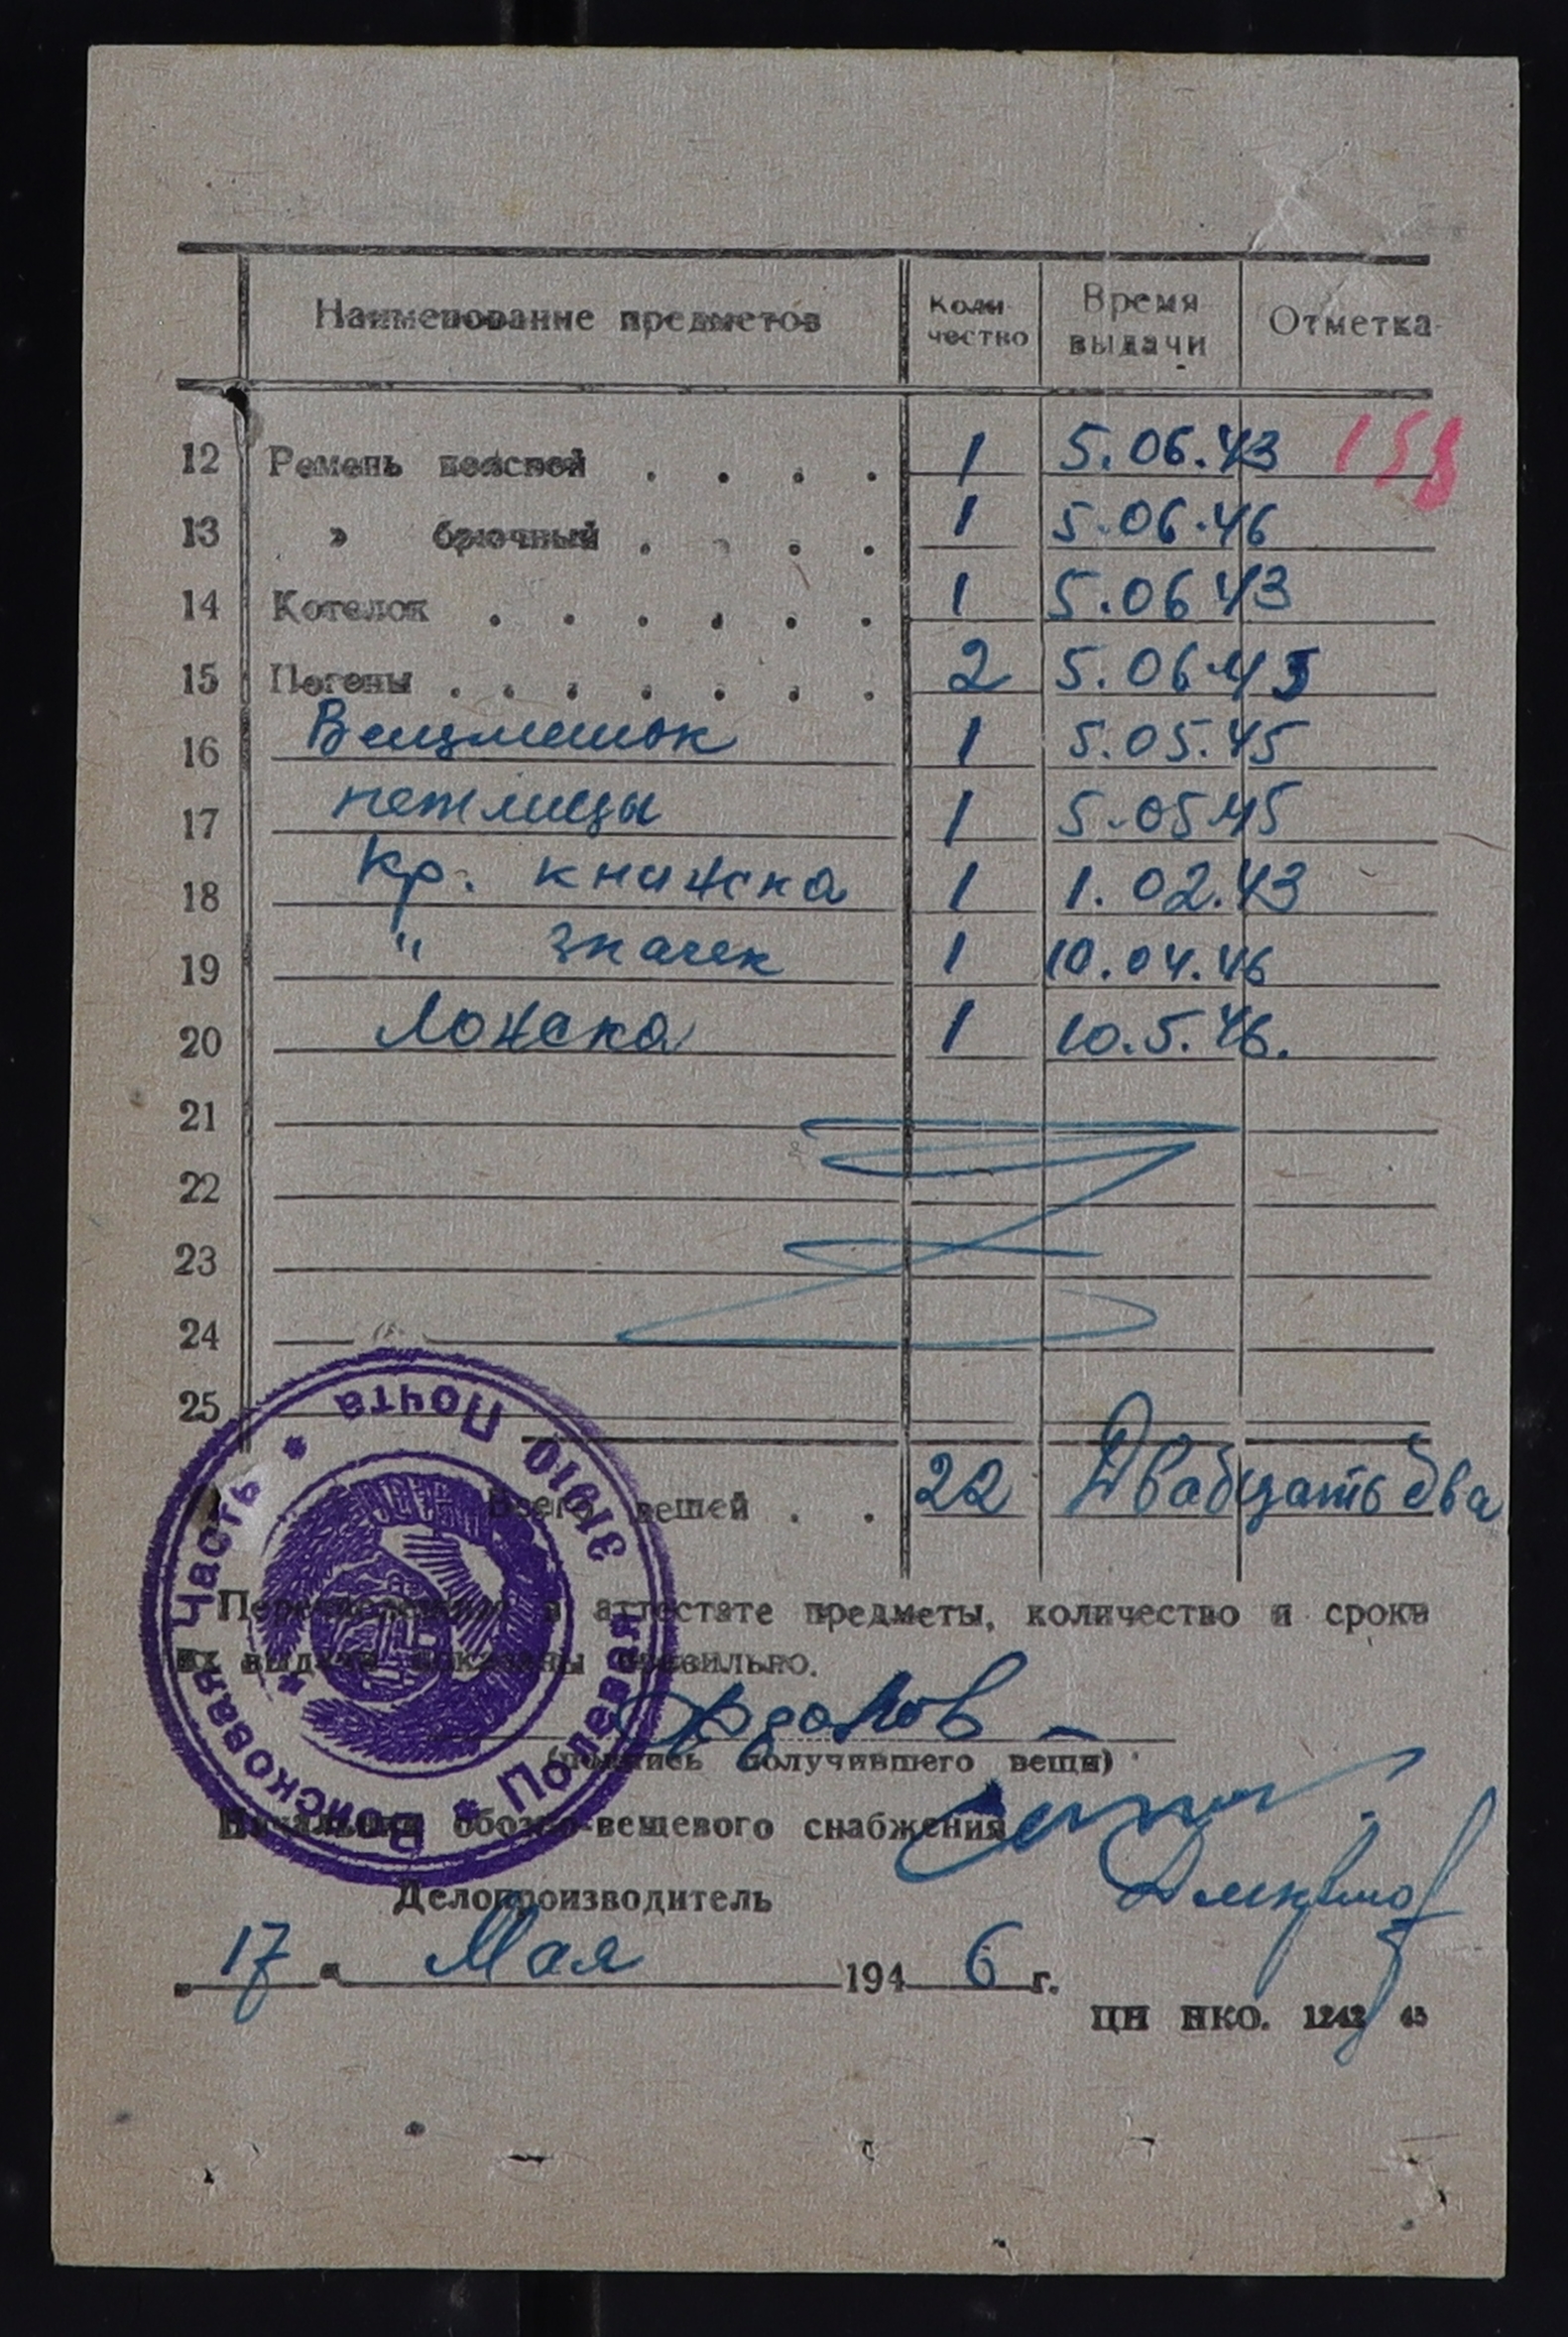 Наименование предметов Коли-чество Время выдачи Отметка
12 Ремень поясной . . . . 1 5.06.43 153
13 » брючный . . . . 1 5.06.46
14 Котелок . . . . . . 1 5.06 43
15 Погоны . . . . . . . 2 5.06.45
16 Вещмешок 1 5.05.45
17 петлицы 1 5.05.45
18 Кр. книжка 1 1.02.43
19 " значек 1 10.04.46
20 Ложка 1 10.5.46.
21
22
23
24
25
Всего вещей . . 22 Двадцать два
Перечисленные в аттестате предметы, количество и сроки
их выдачи показаны правильно.
(подпись получившего вещи)
Начальник обозно-вещевого снабжения
Делопроизводитель
„ 17 “ Мая 194 6 г.
ЦН НКО. 1242 45
* Войсковая Часть * Полевая Почта